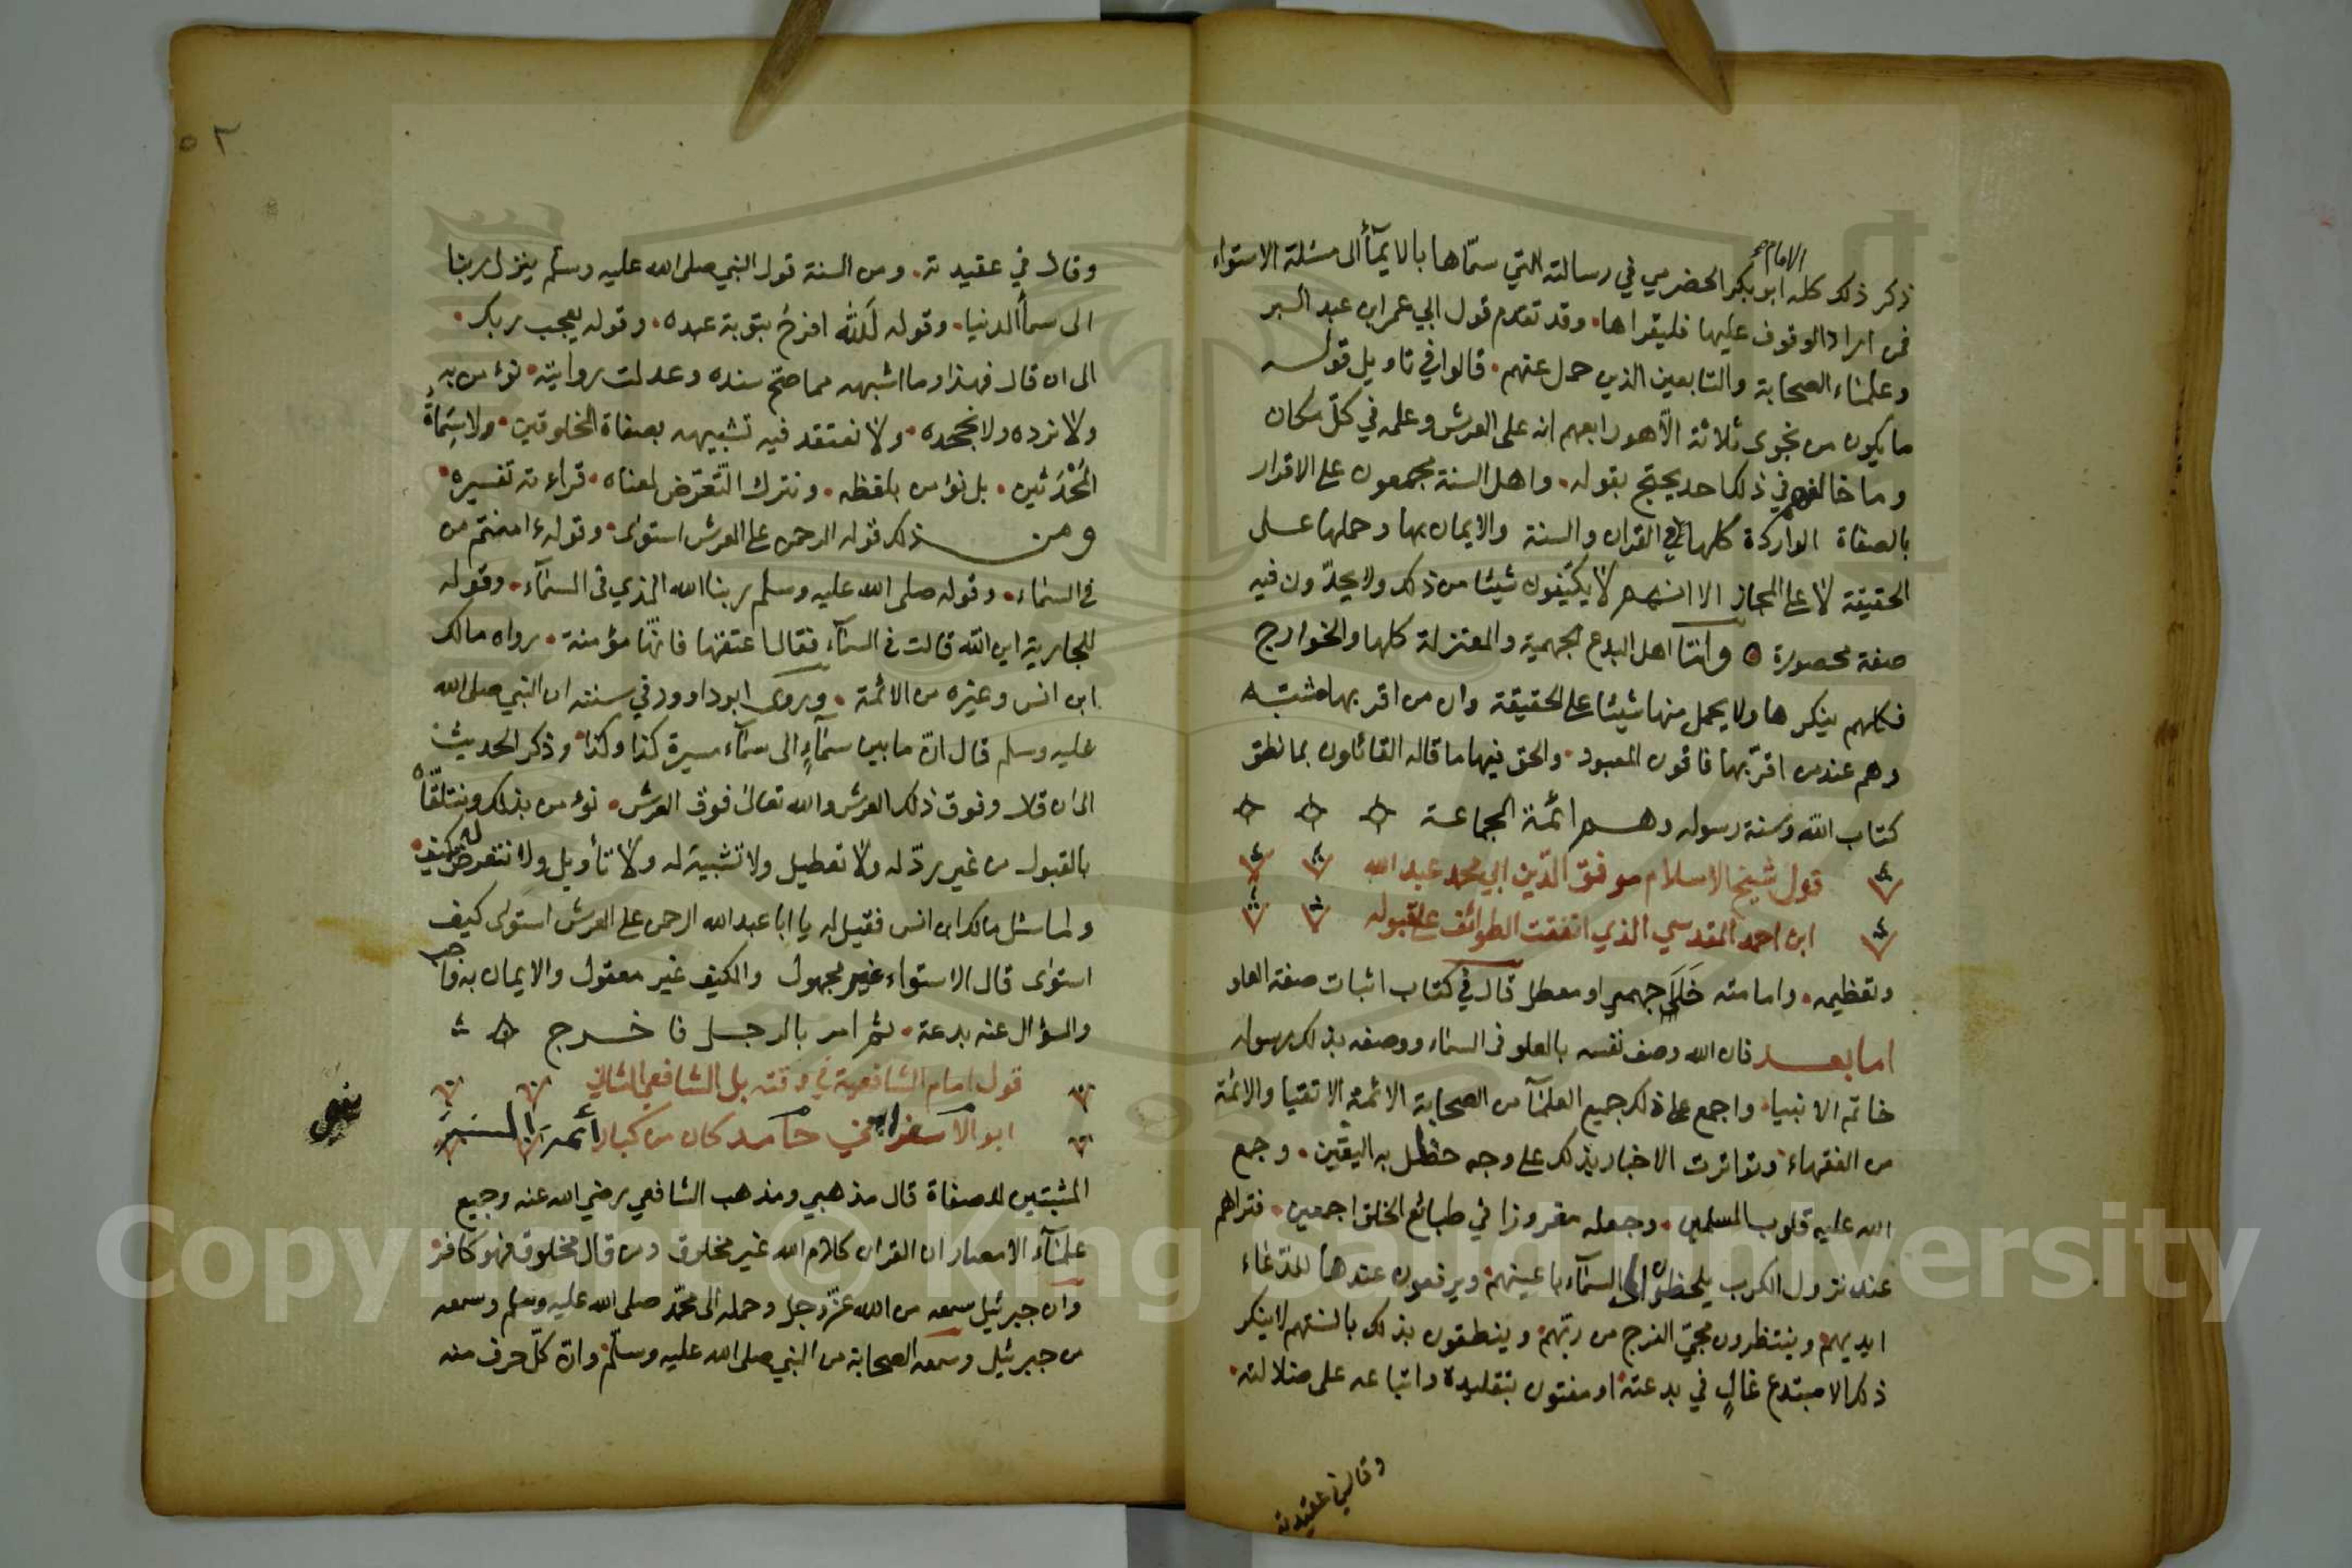 الامام
ذكر ذلك كله ابو بكر الحضرمي في رسالته التي سمّاها بالايمآ الى مسئلة الاستواء
فمن اراد الوقوف عليها فليقراها. وقد تقدم قول ابي عمر ابن عبد البر
وعلمٰاء الصحابة والتابعين الذين حمل عنهم. قالوا في تاويل قوله
ما يكون من نجوى ثلاثة الّا هو رابعهم انه على العرش وعلمه في كلّ مكان
وما خالفهم في ذلك احد يحتج بقوله. واهل السنة مجمعون على الاقرار
بالصفاة الواردة كلها في القران والسنة والايمان بها وحملها على
الحقيقة لا على المجاز الا انهم لا يكيّفون شيئا من ذلك ولا يحدّون فيه
صفة محصورة ٥ وامّا اهل البدع الجهمية والمعتزلة كلها والخوارج
فكلهم ينكرها ولا يحمل منها شيئا على الحقيقة وان من اقر بها مشبّه
وهم عند من اقرّ بها نافون المعبود. والحق فيها ما قاله القائلون بما نطق
كتاب الله وسنة رسوله وهم ائمّة الجماعة
قول شيخ الاسلام موفق الدّين ابي محمد عبد الله
ابن احمد المقدسي الذي اتفقت الطوائف على قبوله
وتعظيمه. وامامته خَلَى جهمي او معطل قال في كتاب اثبات صفة العلو
اما بعد فان الله وصف نفسه بالعلو في السمٰاء ووصفه بذلك رسوله
خاتم الانبياء. واجمع على ذلك جميع العلمٰآ من الصحابة الائمة الاتقيا والائمّة
من الفقهاء وتواترت الاخبار بذلك على وجه حصل به اليقين. وجمع
الله عليه قلوب المسلمين. وجعله مغروزا في طبائع الخلق اجمعين. فتراهم
عند نزول الكرب يلحظون الى السمٰآء باعينهم ويرفعون عندها للدّعاء
ايديهم وينتظرون مجئ الفرج من ربّهم وينطقون بذلك بالسنتهم لا ينكر
ذلك الا مبتدع غالٍ في بدعته او مفتون بتقليده واتباعه على ضلالته.
وقال في عقيدته
٥٢
وقال في عقيدته. ومن السنة قول النبي صلى الله عليه وسلم ينزل ربنا
الى سمآ الدنيا. وقوله لَلّٰهُ افرحُ بتوبة عبده. وقوله يعجب ربك.
الى ان قال فهذا وما اشبهه مما صحّ سنده وعدلت روايته نؤمن به
ولا نرده ولا نجحده. ولا نعتقد فيه تشبيهه بصفاة المخلوقين. ولا سِمَاةِ
المُحْدَثين. بل نؤمن بلفظه. ونترك التّعرّض لمعناه. قراءته تفسيره
ومن ذلك قوله الرحمن على العرش استوٰى وقوله ءامنتم من
في السمٰاء. وقوله صلى الله عليه وسلم ربنا الله الذي في السمٰآء. وقوله
للجارية اين الله قالت في السمٰآء فقال اعتقها فانّها مؤمنة. رواه مالك
ابن انس وغيره من الائمّة. وروى ابو داوود في سننه ان النبي صلى الله
عليه وسلم قال انّ ما بين سمآءٍ الى سمآء مسيرة كذا وكذا وذكر الحديث
الى ان قال وفوق ذلك العرش والله تعالىٰ فوق العرش. نؤمن بذلك ونتلقّاه
بالقبول من غير ردّ له ولا تعطيل ولا تشبيه له ولا تأويل ولا نتعرض له بكيف.
ولما سئل مالك ابن انس فقيل له يا ابا عبد الله الرحمن على العرش استوٰى كيف
استوٰى قال الاستواء غير مجهول والكيف غير معقول والايمان به واجب
والسؤال عنه بدعة. ثم امر بالرجل فاخرج
قول امام الشافعية في وقته بل الشافعي الثاني
ابو الاسفرايني حامد كان من كبار أئمة السنة
المثبتين للصفاة قال مذهبي ومذهب الشافعي رضي الله عنه وجميع
علمٰآء الامصار ان القران كلام الله غير مخلوق ومن قال مخلوق فهو كافر
وان جبرئيل سمعه من الله عزّ وجل وحمله الى محمّد صلى الله عليه وسلم وسمعه
من جبرئيل وسمعه الصحابة من النبي صلى الله عليه وسلّم وانّ كلّ حرف منه
Copyright © King Saud University